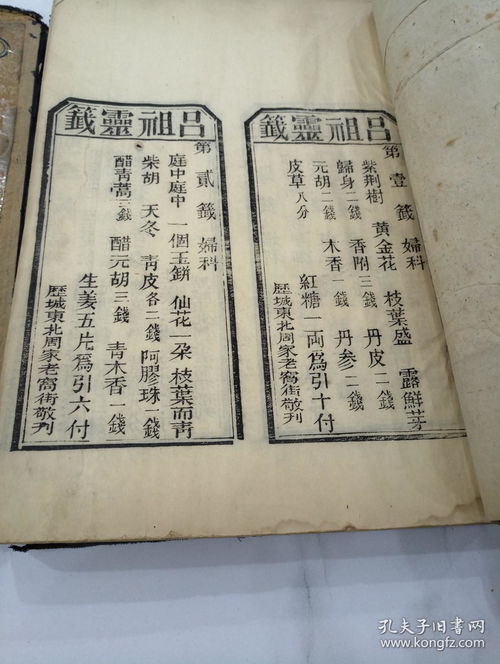 呂祖靈籤
第壹籤婦科
紫荊樹 黃金花 枝葉盛 露鮮芽
歸身二錢 香附三錢 丹皮一錢
元胡二錢 木香一錢 丹參二錢
皮草八分 紅糖一兩為引十付
歷城東北周家老窩街敬刊
呂祖靈籤
第貳籤婦科
庭中庭中 一個玉餅 仙花一朵 枝葉而青
柴胡 天冬 青皮各二錢 阿膠珠一錢
醋青蒿三錢 醋元胡三錢 青木香一錢
生姜五片為引六付
歷城東北周家老窩街敬刊
孔夫子旧书网
www.kongfz.com